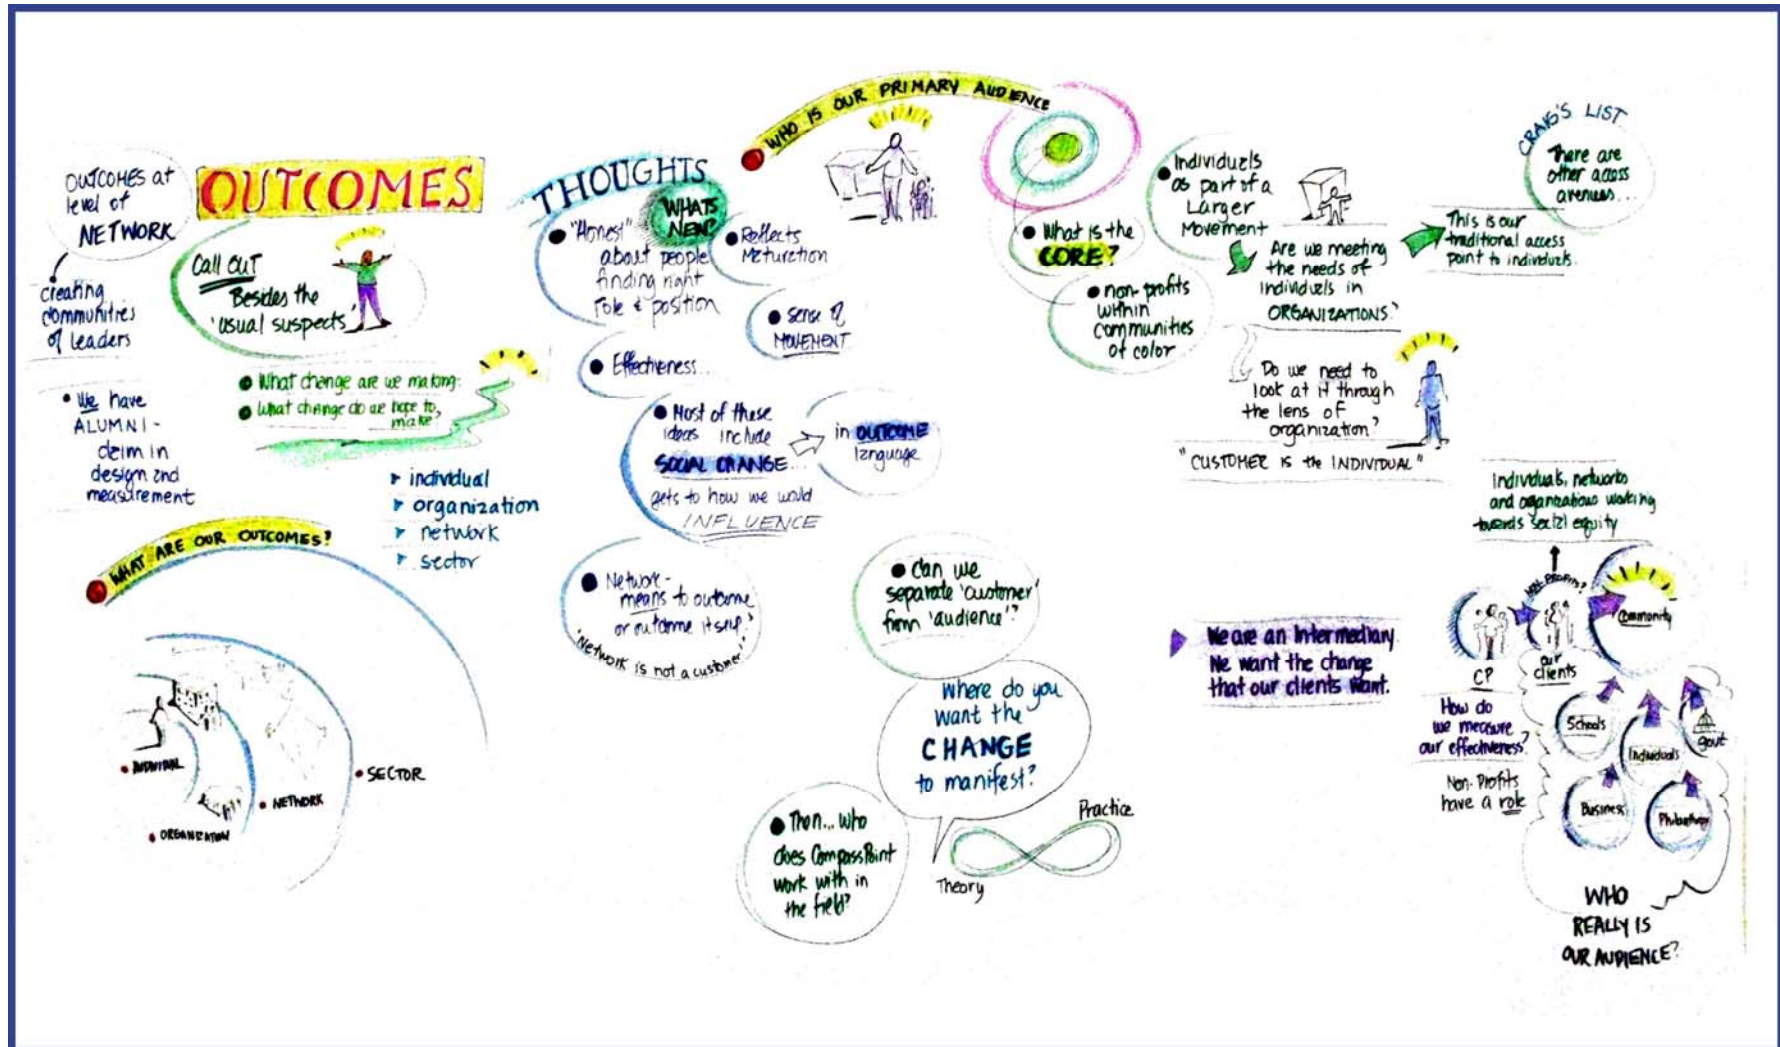 OUTCOMES at
level of
NETWORK
creating
communities
of leaders
• We have
ALUMNI -
claim in
design and
measurement
OUTCOMES
Call OUT
Besides the
'usual suspects'
• What change are we making.
• What change do we hope to,
make
individual
organization
network
sector
WHAT ARE OUR OUTCOMES?
• INDIVIDUAL
• ORGANIZATION
• NETWORK
• SECTOR
THOUGHTS
WHATS
NEW?
• "Honest"
about people
finding right
role & position
• Reflects
Maturation
• sense of
MOVEMENT
• Effectiveness...
• Most of these
ideas include
SOCIAL CHANGE...
in OUTCOME
language
gets to how we would
INFLUENCE
• Network -
means to outcome
or outcome itself.
'Network is not a customer'
WHO IS OUR PRIMARY AUDIENCE
• What is the
CORE?
• non-profits
within
communities
of color
• Individuals
as part of a
Larger
Movement
Are we meeting
the needs of
individuals in
ORGANIZATIONS?
This is our
traditional access
point to individuals.
CRAIG'S LIST
There are
other access
avenues...
Do we need to
look at it through
the lens of
organization?
"CUSTOMER is the INDIVIDUAL"
• Can we
separate 'customer'
from 'audience'?
Where do you
want the
CHANGE
to manifest?
• Then... who
does CompassPoint
work with in
the field?
Theory
Practice
We are an Intermediary.
We want the change
that our clients want.
Individuals, networks
and organizations working
towards social equity
CP
NON-PROFITS?
our
clients
Community
How do
we measure
our effectiveness?
Non-Profits
have a role
Schools
Individuals
govt
Business
Philanthropy
WHO
REALLY IS
OUR AUDIENCE?